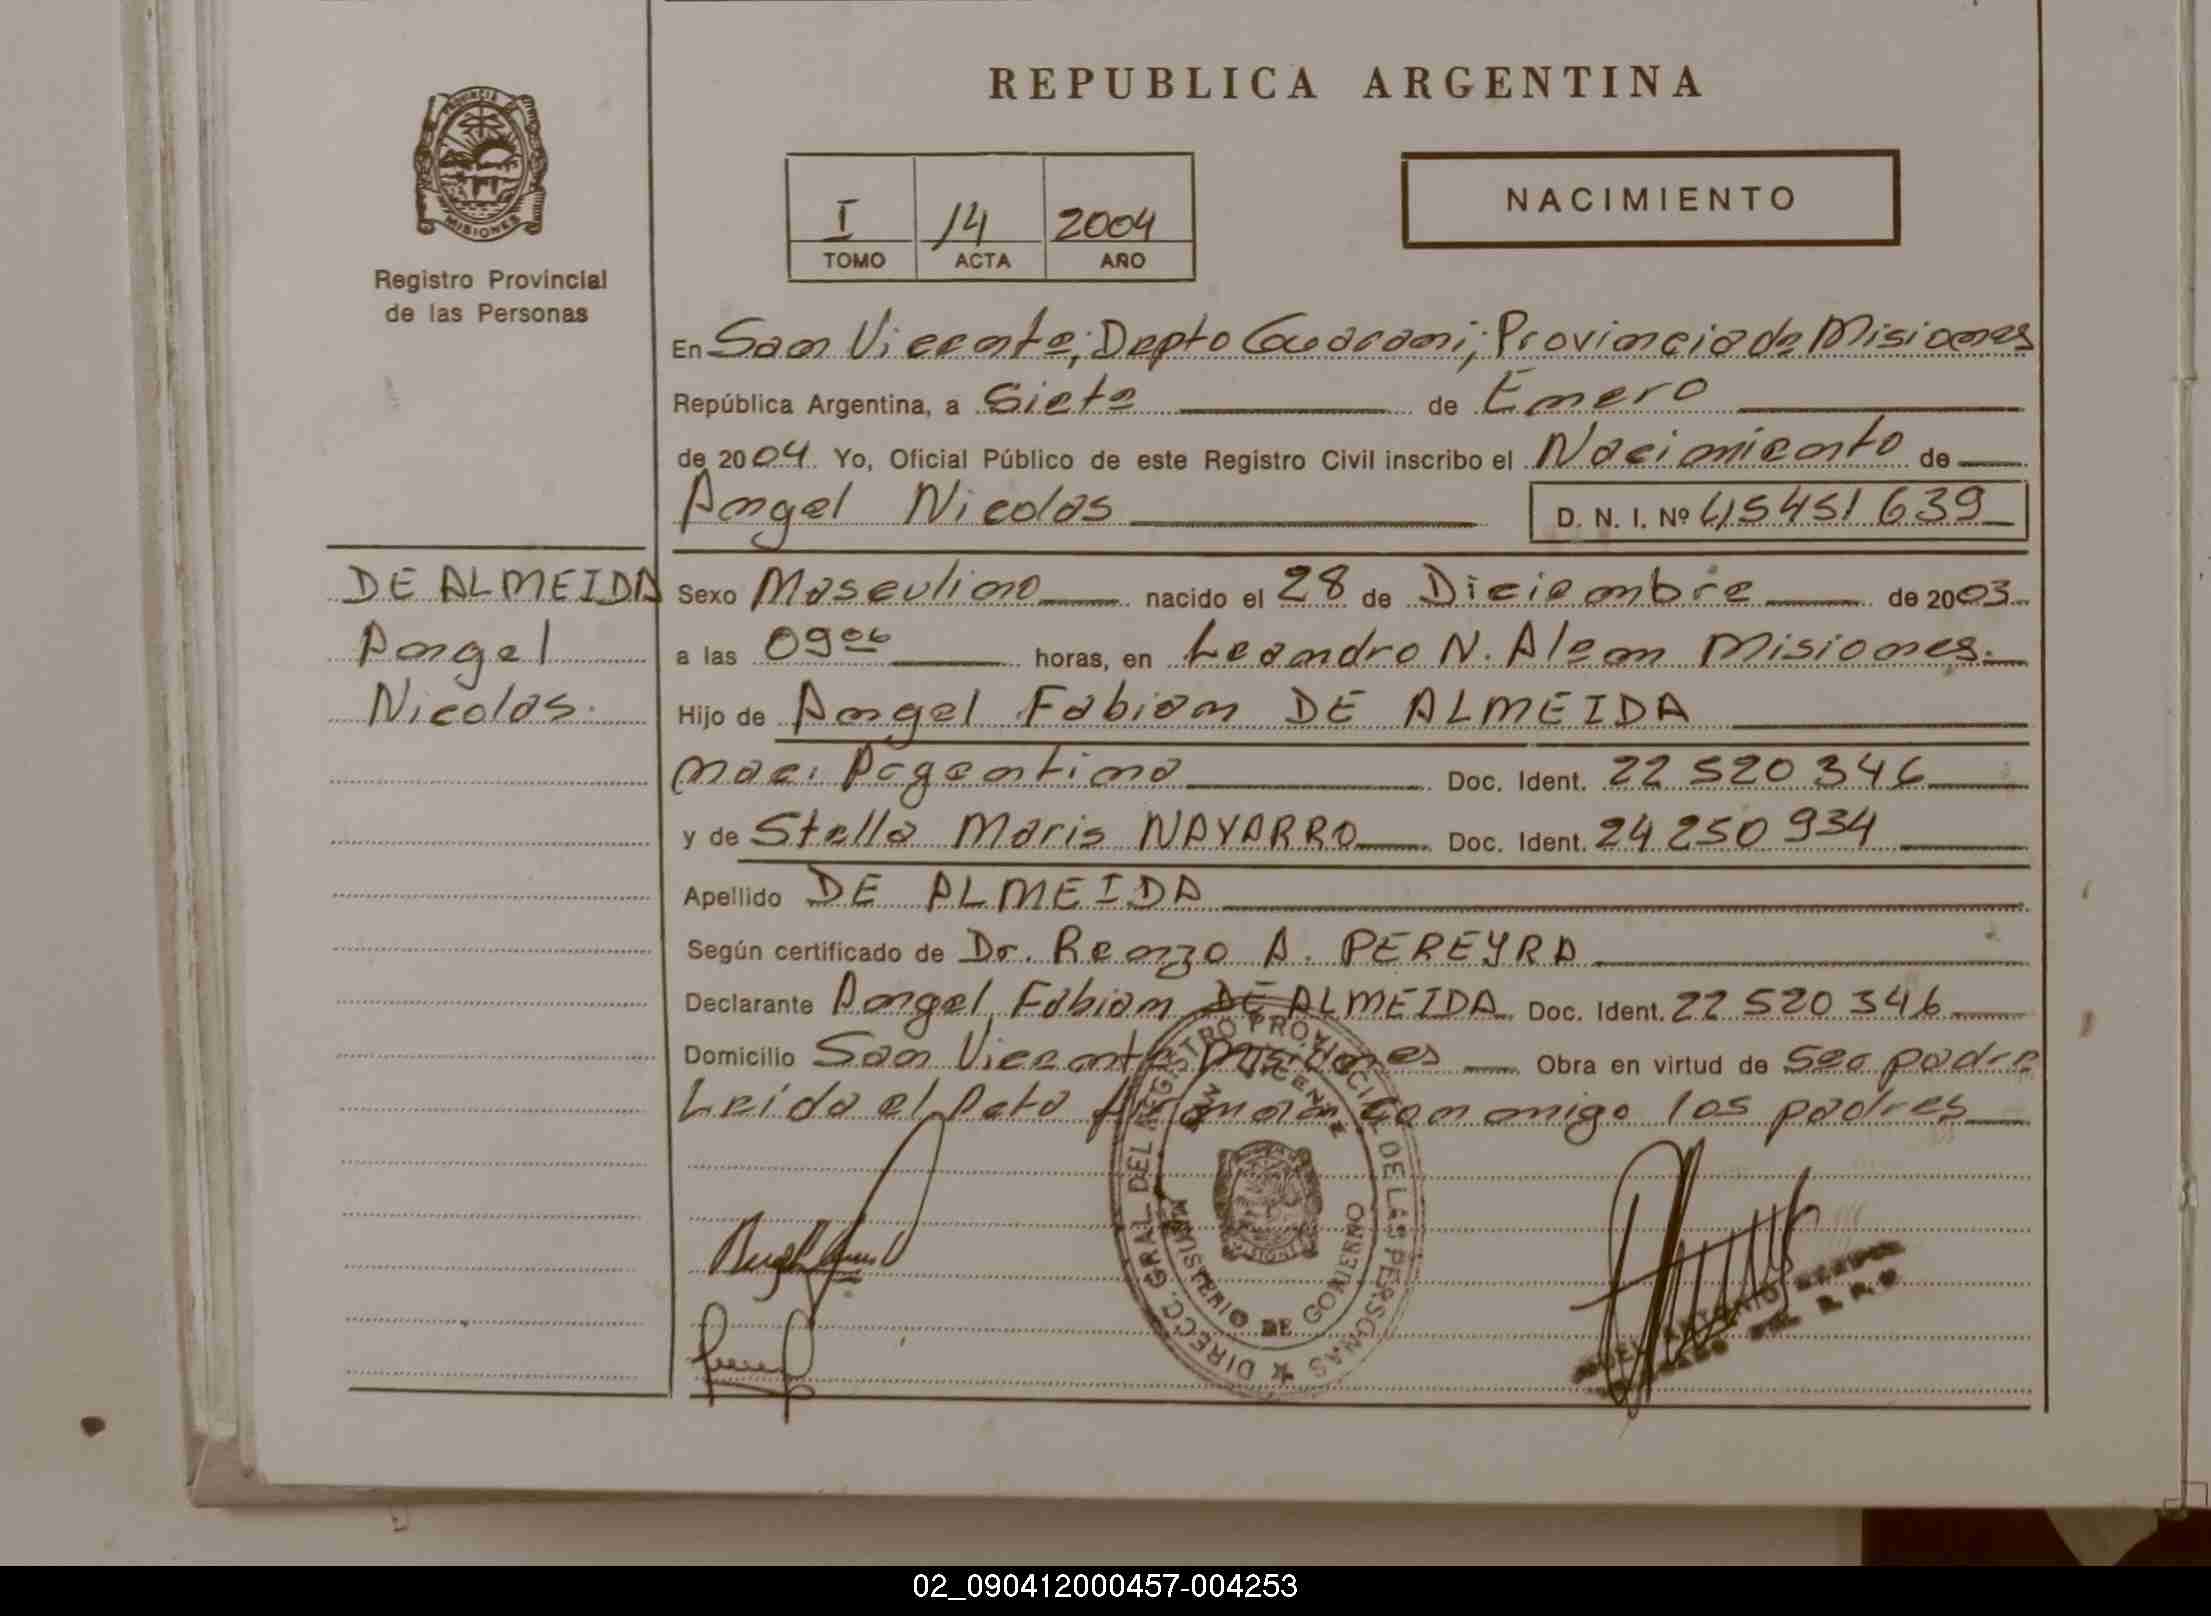 REPUBLICA ARGENTINA
PROVINCIA DE
MISIONES
Registro Provincial
de las Personas
I 14 2004
TOMO ACTA AÑO
NACIMIENTO
En San Vicente; Depto Guarani; Provincia de Misiones
República Argentina, a Siete de Enero
de 2004 Yo, Oficial Público de este Registro Civil inscribo el Nacimiento de
Angel Nicolas D. N. I. Nº 45451639
DE ALMEIDA
Angel
Nicolas.
Sexo Masculino nacido el 28 de Diciembre de 2003
a las 09 06 horas, en Leandro N. Alem Misiones.
Hijo de Angel Fabian DE ALMEIDA
nac. Argentina Doc. Ident. 22 520 346
y de Stella Maris NAVARRO Doc. Ident. 24 250 934
Apellido DE ALMEIDA
Según certificado de Dr. Renzo A. PEREYRA
Declarante Angel Fabian DE ALMEIDA Doc. Ident. 22 520 346
Domicilio San Vicente Misiones Obra en virtud de Seo padre
Leida el Acta firman conmigo los padres
DIRECC. GRAL. DEL REGISTRO PROVINCIAL DE LAS PERSONAS
SAN VICENTE
MINISTERIO DE GOBIERNO
ANTONIO
02_090412000457-004253